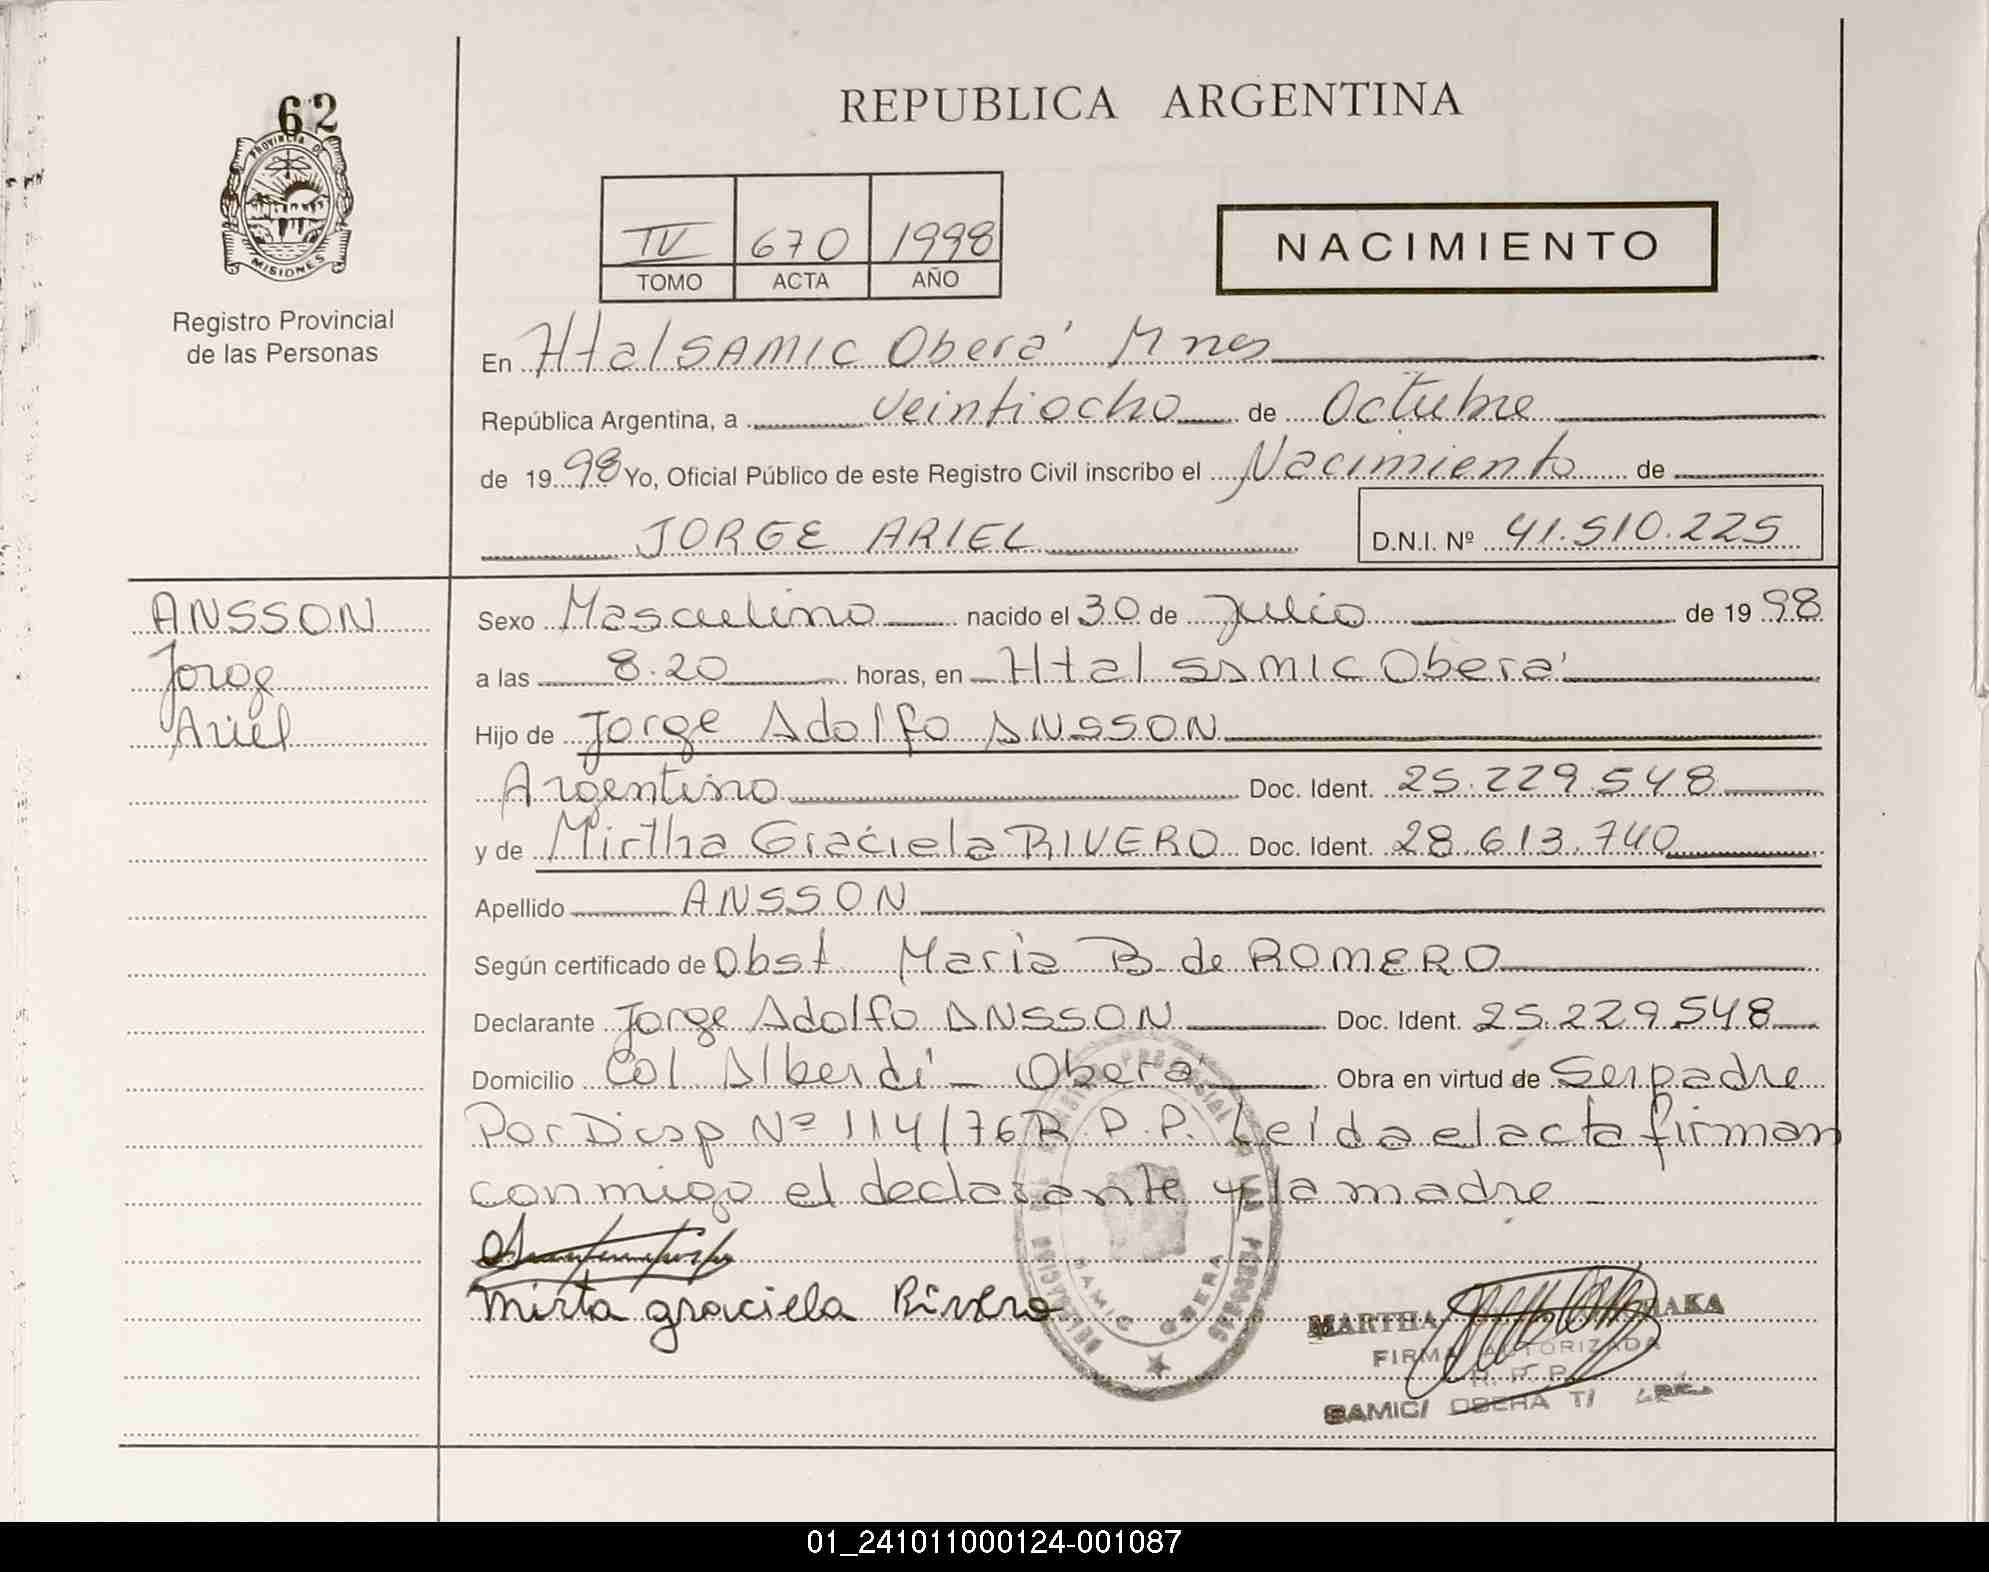 62
PROVINCIA DE
MISIONES
Registro Provincial
de las Personas
REPUBLICA ARGENTINA
IV 670 1998
TOMO ACTA AÑO
NACIMIENTO
En Htal SAMIC Oberá Mnes
República Argentina, a veintiocho de Octubre
de 1998 Yo, Oficial Público de este Registro Civil inscribo el Nacimiento de
JORGE ARIEL D.N.I. Nº 41.510.225
ANSSON
Jorge
Ariel
Sexo Masculino nacido el 30 de Julio de 1998
a las 8.20 horas, en Htal SAMIC Oberá
Hijo de Jorge Adolfo ANSSON
Argentino Doc. Ident. 25.229.548
y de Mirtha Graciela RIVERO Doc. Ident. 28.613.740
Apellido ANSSON
Según certificado de Obst Maria B de ROMERO
Declarante Jorge Adolfo ANSSON Doc. Ident. 25.229.548
Domicilio Col Alberdi - Oberá Obra en virtud de Ser padre
Por Disp Nº 114/76 R.P.P. Leída el acta firman
conmigo el declarante y la madre
Mirta graciela Rivero
SAMIC OBERA
MARTHA
FIRMA AUTORIZADA
R. P. P.
SAMIC/ OBERA T/
01_241011000124-001087